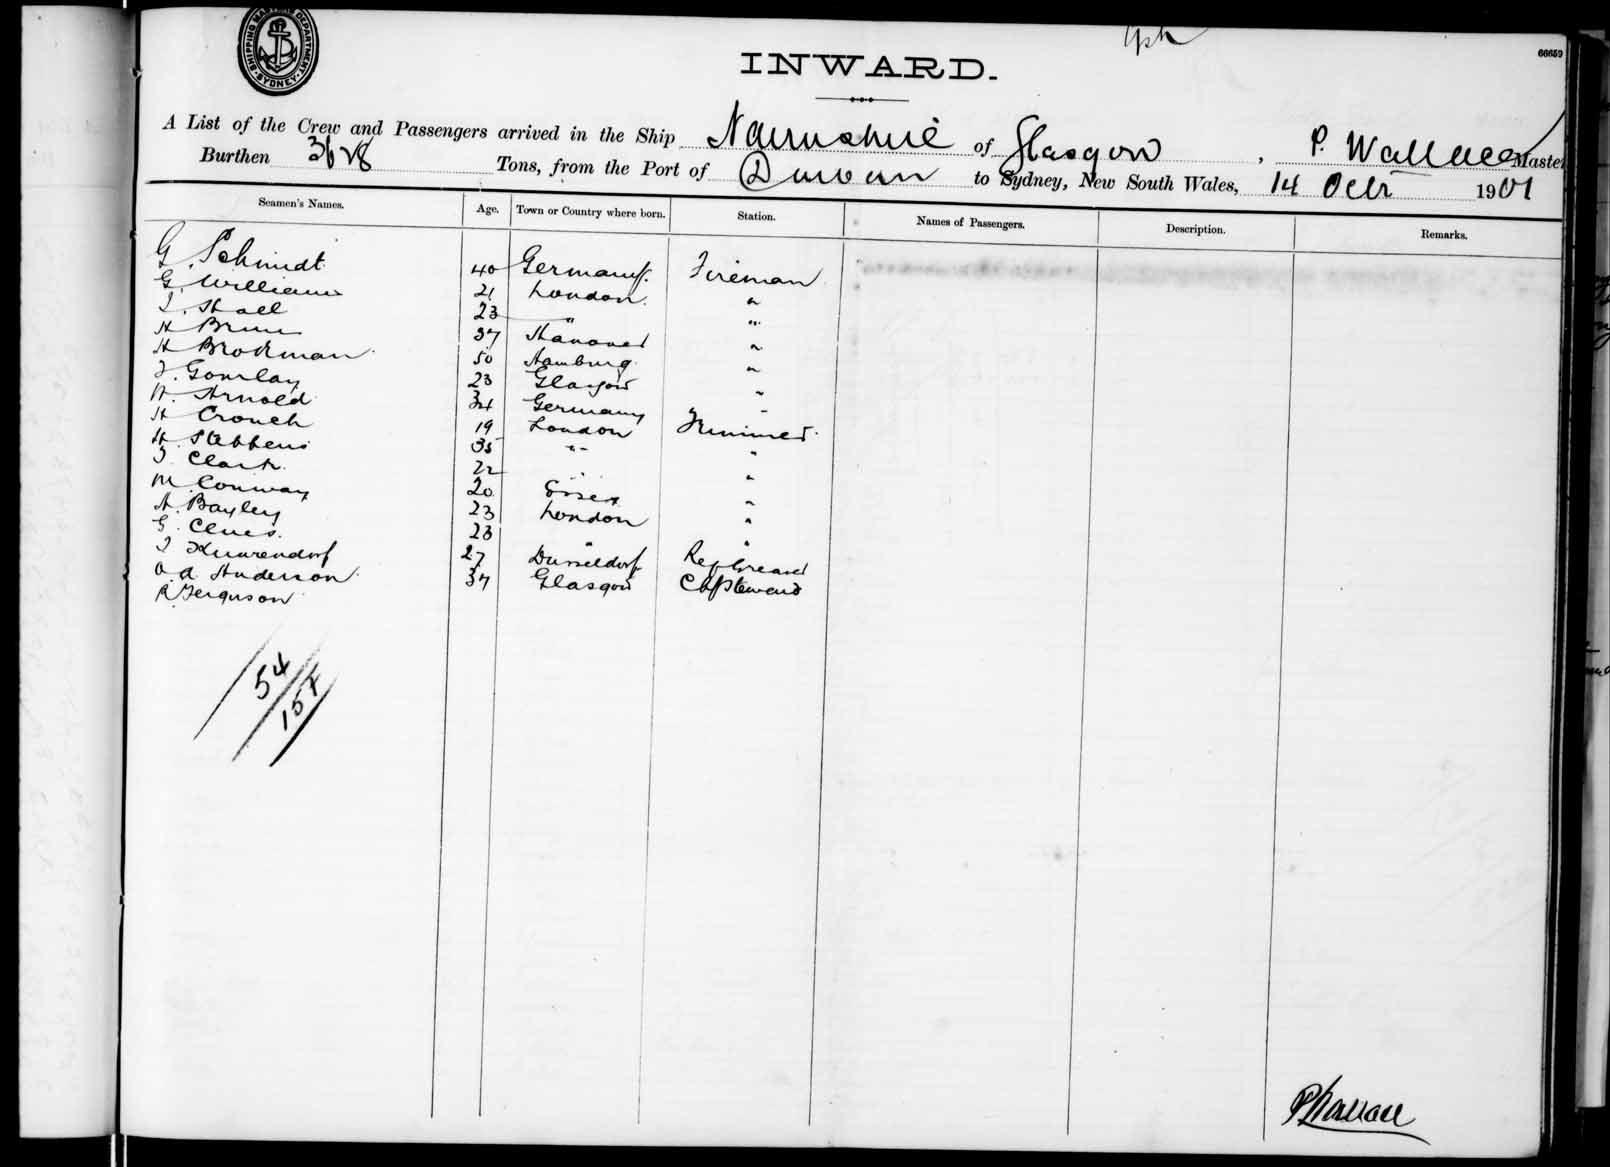 SHIPPING MASTER'S DEPARTMENT SYDNEY
66659
INWARD.
A List of the Crew and Passengers arrived in the Ship Nairnshire of Glasgow, P. Wallace Master
Burthen 3628 Tons, from the Port of Durban to Sydney, New South Wales, 14 Octr 1901
Seamen's Names. Age. Town or Country where born. Station. Names of Passengers. Description. Remarks.
G. Schmidt 40 Germany. Fireman
G. Williams 21 London. "
J. Hall 23 " "
H Brun 37 Hanover "
H Brokman 50 Hamburg "
J. Gourlay 23 Glasgow "
H. Arnold 34 Germany "
H Crouch 19 London Trimmer
H. Stebbens 35 " "
J. Clark. 22 " "
M. Conway 20 Essex "
A. Bayley 23 London "
G. Clues. 23 " "
27 Dusseldorf
O. A Anderson 37 Glasgow Ch Steward
R. Ferguson
54
157
P Wallace